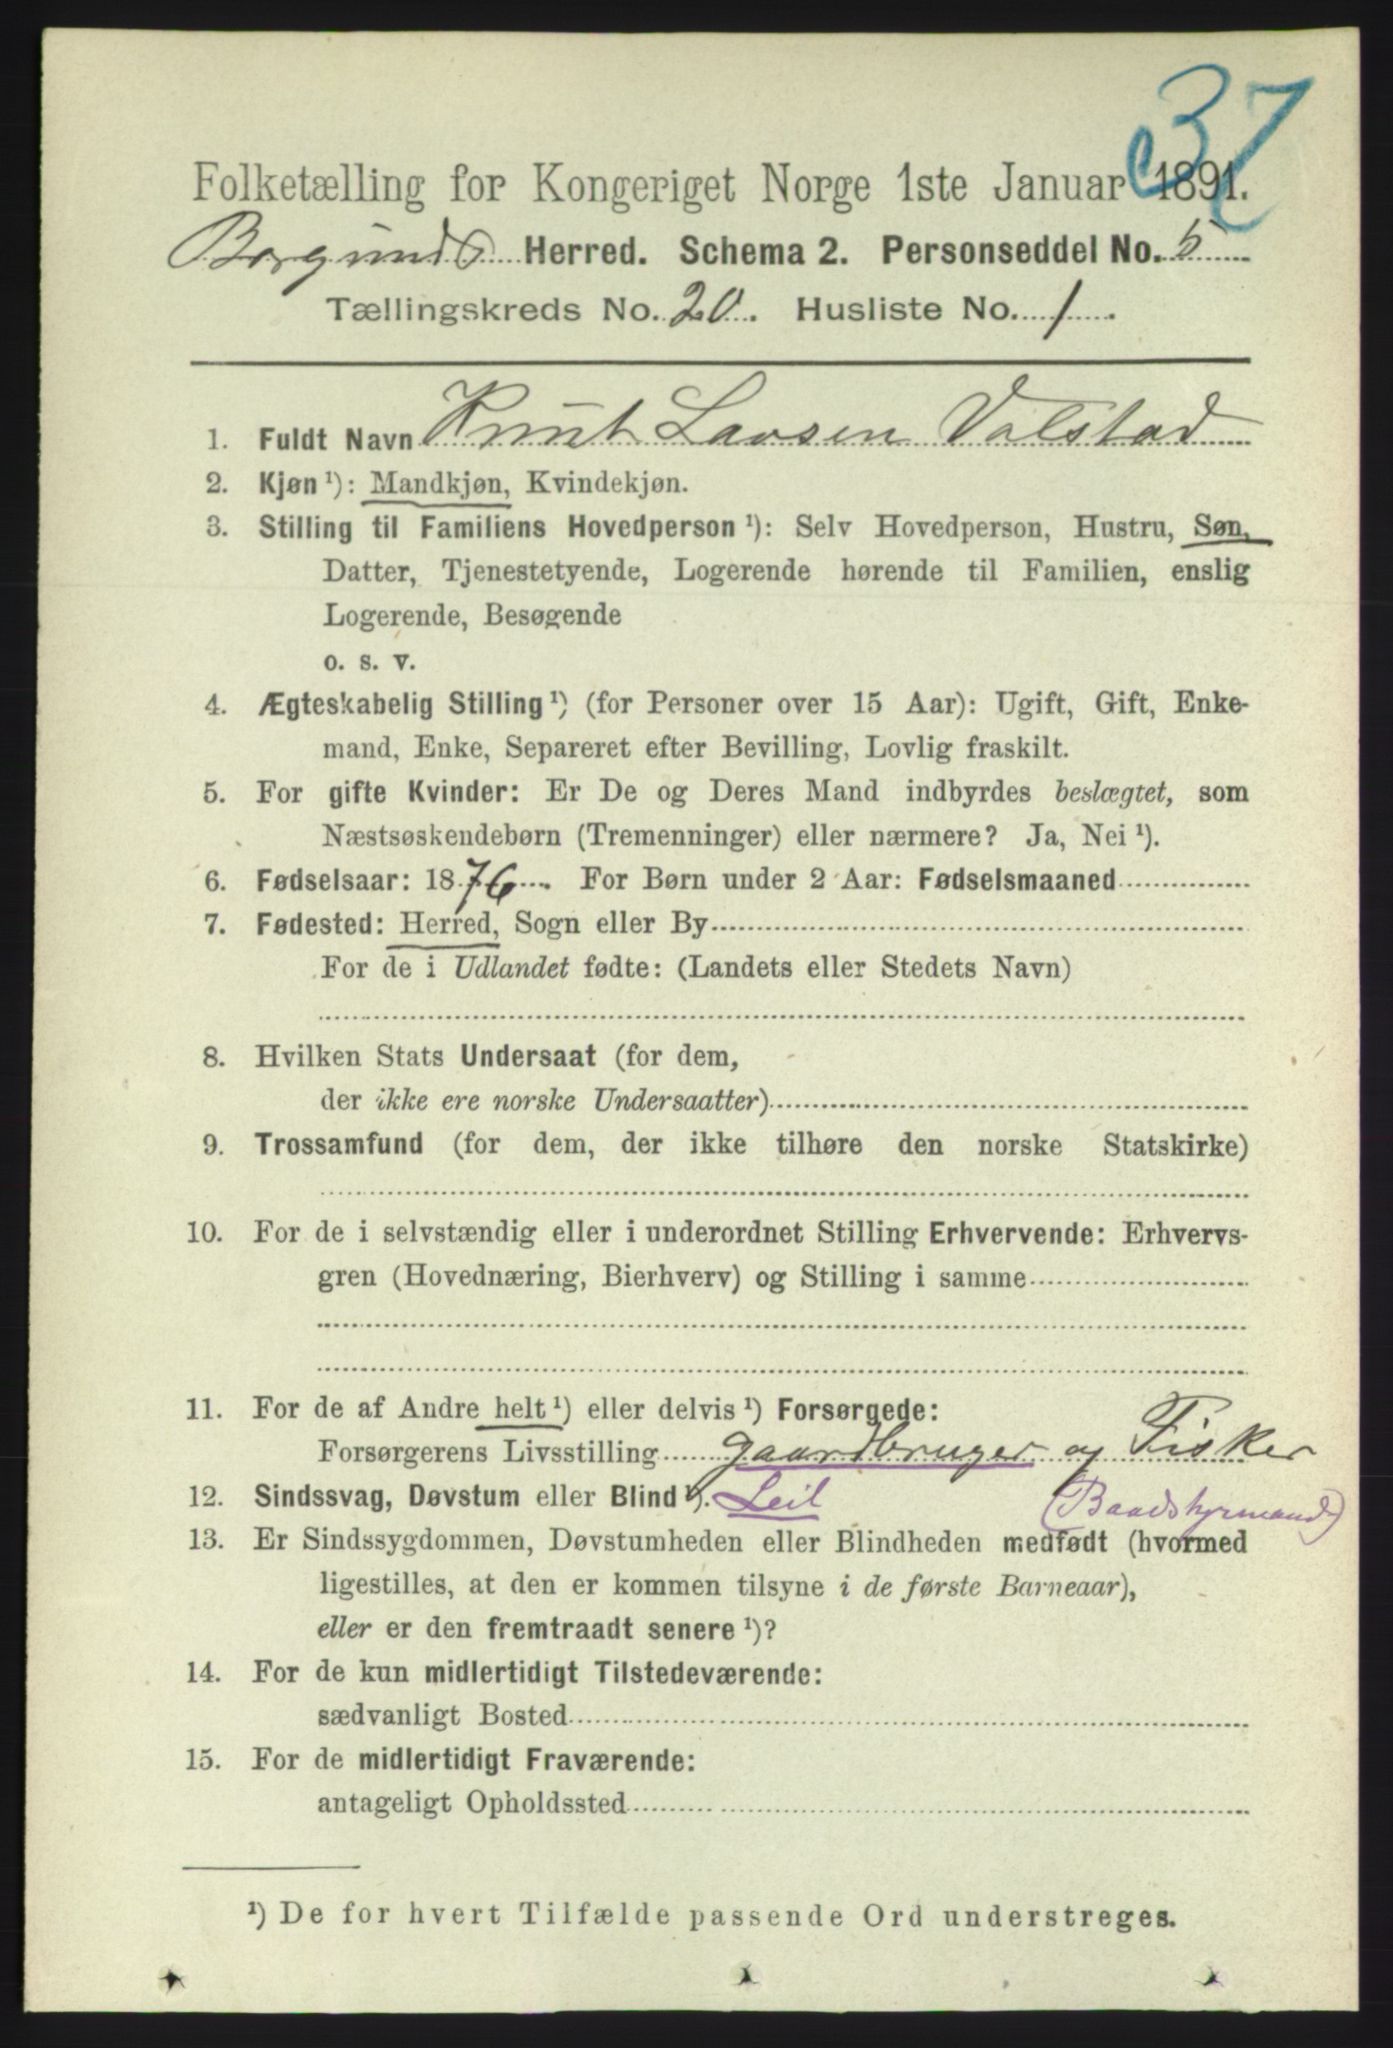 37
Folketælling for Kongeriget Norge 1ste Januar 1891.
Borgund Herred. Schema 2. Personseddel No. 5
Tællingskreds No. 20. Husliste No. 1.
1. Fuldt Navn Knut Larsen Valstad
2. Kjøn ¹): Mandkjøn, Kvindekjøn.
3. Stilling til Familiens Hovedperson ¹): Selv Hovedperson, Hustru, Søn,
Datter, Tjenestetyende, Logerende hørende til Familien, enslig
Logerende, Besøgende
o. s. v.
4. Ægteskabelig Stilling ¹) (for Personer over 15 Aar): Ugift, Gift, Enke-
mand, Enke, Separeret efter Bevilling, Lovlig fraskilt.
5. For gifte Kvinder: Er De og Deres Mand indbyrdes beslægtet, som
Næstsøskendebørn (Tremenninger) eller nærmere? Ja, Nei ¹).
6. Fødselsaar: 1876. For Børn under 2 Aar: Fødselsmaaned
7. Fødested: Herred, Sogn eller By
For de i Udlandet fødte: (Landets eller Stedets Navn)
8. Hvilken Stats Undersaat (for dem,
der ikke ere norske Undersaatter)
9. Trossamfund (for dem, der ikke tilhøre den norske Statskirke)
10. For de i selvstændig eller i underordnet Stilling Erhvervende: Erhvervs-
gren (Hovednæring, Bierhverv) og Stilling i samme
11. For de af Andre helt ¹) eller delvis ¹) Forsørgede:
Forsørgerens Livsstilling gaardbruger og Fisker
12. Sindssvag, Døvstum eller Blind ¹). Leil (Baadstyrmand)
13. Er Sindssygdommen, Døvstumheden eller Blindheden medfødt (hvormed
ligestilles, at den er kommen tilsyne i de første Barneaar),
eller er den fremtraadt senere ¹)?
14. For de kun midlertidigt Tilstedeværende:
sædvanligt Bosted
15. For de midlertidigt Fraværende:
antageligt Opholdssted
¹) De for hvert Tilfælde passende Ord understreges.